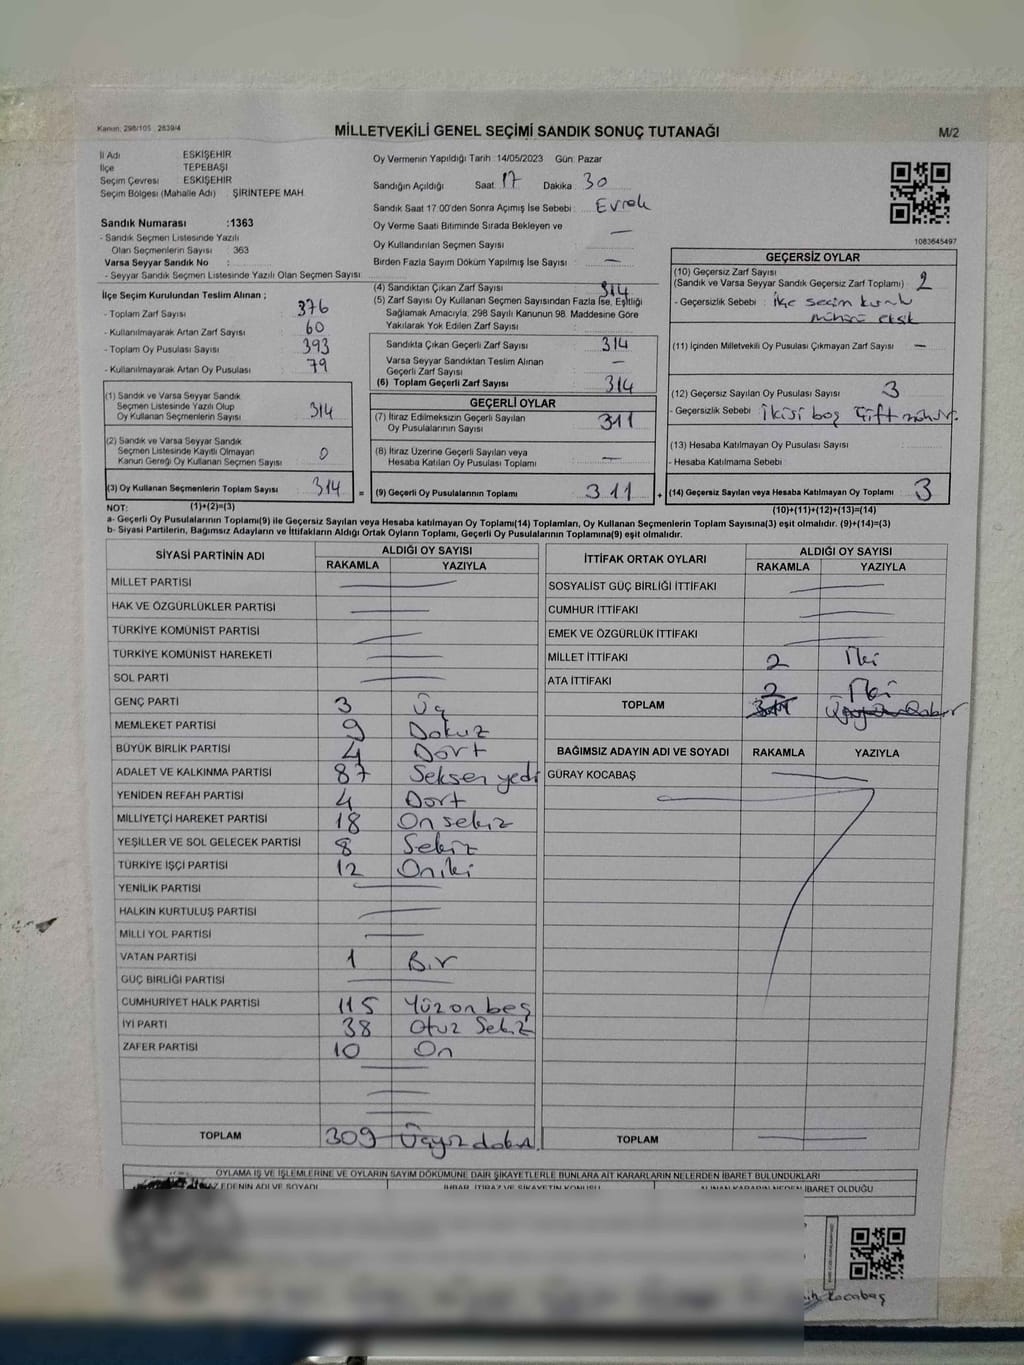 Kanun: 298/105 , 2839/4
MİLLETVEKİLİ GENEL SEÇİMİ SANDIK SONUÇ TUTANAĞI
M/2
İl Adı ESKİŞEHİR
İlçe TEPEBAŞI
Seçim Çevresi ESKİŞEHİR
Seçim Bölgesi (Mahalle Adı) ŞİRİNTEPE MAH.
Oy Vermenin Yapıldığı Tarih :14/05/2023 Gün: Pazar
Sandığın Açıldığı Saat 17 Dakika 30
Sandık Saat 17:00'den Sonra Açılmış İse Sebebi : Evrak
Oy Verme Saati Bitiminde Sırada Bekleyen ve
Oy Kullandırılan Seçmen Sayısı : —
Birden Fazla Sayım Döküm Yapılmış İse Sayısı : —
1083645497
Sandık Numarası :1363
- Sandık Seçmen Listesinde Yazılı
Olan Seçmenlerin Sayısı : 363
Varsa Seyyar Sandık No :
- Seyyar Sandık Seçmen Listesinde Yazılı Olan Seçmen Sayısı :
İlçe Seçim Kurulundan Teslim Alınan ;
- Toplam Zarf Sayısı : 376
- Kullanılmayarak Artan Zarf Sayısı : 60
- Toplam Oy Pusulası Sayısı : 393
- Kullanılmayarak Artan Oy Pusulası : 79
(1) Sandık ve Varsa Seyyar Sandık
Seçmen Listesinde Yazılı Olup
Oy Kullanan Seçmenlerin Sayısı : 314
(2) Sandık ve Varsa Seyyar Sandık
Seçmen Listesinde Kayıtlı Olmayan
Kanun Gereği Oy Kullanan Seçmen Sayısı : 0
(3) Oy Kullanan Seçmenlerin Toplam Sayısı : 314
(1)+(2)=(3)
(4) Sandıktan Çıkan Zarf Sayısı : 314
(5) Zarf Sayısı Oy Kullanan Seçmen Sayısından Fazla İse, Eşitliği
Sağlamak Amacıyla, 298 Sayılı Kanunun 98. Maddesine Göre
Yakılarak Yok Edilen Zarf Sayısı :
Sandıkta Çıkan Geçerli Zarf Sayısı : 314
Varsa Seyyar Sandıktan Teslim Alınan
Geçerli Zarf Sayısı : —
(6) Toplam Geçerli Zarf Sayısı : 314
GEÇERLİ OYLAR
(7) İtiraz Edilmeksizin Geçerli Sayılan
Oy Pusulalarının Sayısı : 311
(8) İtiraz Üzerine Geçerli Sayılan veya
Hesaba Katılan Oy Pusulası Toplamı : —
= (9) Geçerli Oy Pusulalarının Toplamı : 311
GEÇERSİZ OYLAR
(10) Geçersiz Zarf Sayısı
(Sandık ve Varsa Seyyar Sandık Geçersiz Zarf Toplamı) : 2
- Geçersizlik Sebebi : ilçe seçim kurulu
mührü eksik
(11) İçinden Milletvekili Oy Pusulası Çıkmayan Zarf Sayısı : —
(12) Geçersiz Sayılan Oy Pusulası Sayısı : 3
- Geçersizlik Sebebi : ikisi boş Çift mühür.
(13) Hesaba Katılmayan Oy Pusulası Sayısı :
- Hesaba Katılmama Sebebi :
+ (14) Geçersiz Sayılan veya Hesaba Katılmayan Oy Toplamı : 3
(10)+(11)+(12)+(13)=(14)
NOT:
a- Geçerli Oy Pusulalarının Toplamı(9) ile Geçersiz Sayılan veya Hesaba katılmayan Oy Toplamı(14) Toplamları, Oy Kullanan Seçmenlerin Toplam Sayısına(3) eşit olmalıdır. (9)+(14)=(3)
b- Siyasi Partilerin, Bağımsız Adayların ve İttifakların Aldığı Ortak Oyların Toplamı, Geçerli Oy Pusulalarının Toplamına(9) eşit olmalıdır.
SİYASİ PARTİNİN ADI ALDIĞI OY SAYISI
RAKAMLA YAZIYLA
MİLLET PARTİSİ —
HAK VE ÖZGÜRLÜKLER PARTİSİ —
TÜRKİYE KOMÜNİST PARTİSİ —
TÜRKİYE KOMÜNİST HAREKETİ —
SOL PARTİ —
GENÇ PARTİ 3 Üç
MEMLEKET PARTİSİ 9 Dokuz
BÜYÜK BİRLİK PARTİSİ 4 Dört
ADALET VE KALKINMA PARTİSİ 87 Seksen yedi
YENİDEN REFAH PARTİSİ 4 Dört
MİLLİYETÇİ HAREKET PARTİSİ 18 On sekiz
YEŞİLLER VE SOL GELECEK PARTİSİ 8 Sekiz
TÜRKİYE İŞÇİ PARTİSİ 12 Oniki
YENİLİK PARTİSİ —
HALKIN KURTULUŞ PARTİSİ —
MİLLİ YOL PARTİSİ —
VATAN PARTİSİ 1 Bir
GÜÇ BİRLİĞİ PARTİSİ —
CUMHURİYET HALK PARTİSİ 115 Yüz on beş
İYİ PARTİ 38 Otuz Sekiz
ZAFER PARTİSİ 10 On
TOPLAM 309 Üçyüz dokuz
İTTİFAK ORTAK OYLARI ALDIĞI OY SAYISI
RAKAMLA YAZIYLA
SOSYALİST GÜÇ BİRLİĞİ İTTİFAKI —
CUMHUR İTTİFAKI —
EMEK VE ÖZGÜRLÜK İTTİFAKI —
MİLLET İTTİFAKI 2 İki
ATA İTTİFAKI
TOPLAM 2 İki
BAĞIMSIZ ADAYIN ADI VE SOYADI RAKAMLA YAZIYLA
GÜRAY KOCABAŞ —
TOPLAM —
OYLAMA İŞ VE İŞLEMLERİNE VE OYLARIN SAYIM DÖKÜMÜNE DAİR ŞİKAYETLERLE BUNLARA AİT KARARLARIN NELERDEN İBARET BULUNDUKLARI
EDENİN ADI VE SOYADI İHBAR, İTİRAZ VE ŞİKAYETİN KONUSU ALINAN KARARIN NEDEN İBARET OLDUĞU
Kocabaş